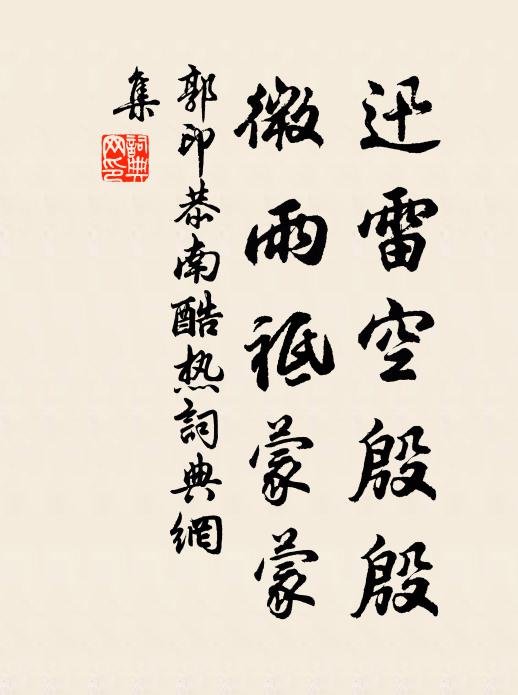 迅雷空殷殷
微雨祗蒙蒙
郭印恭南酷热詞典網
集
詞典
网印